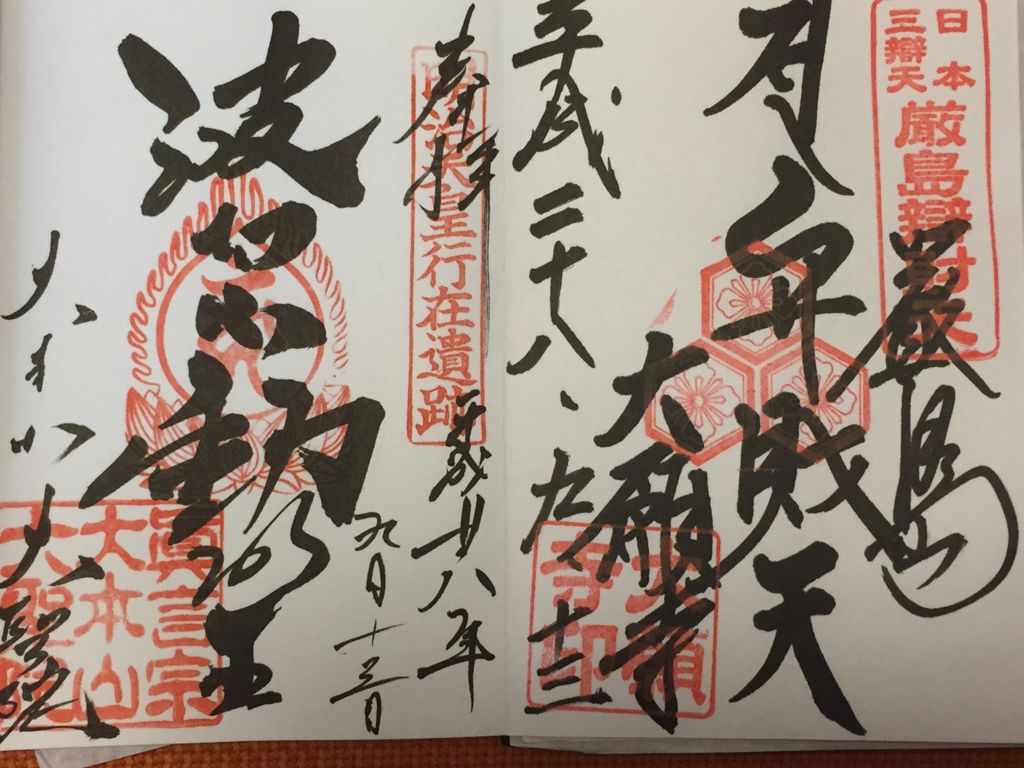 日本
三辯天
厳島辯財天
厳島山
弁財天
大願寺
大願寺印
平成二十八、九、十三
奉拝
明治天皇行在遺跡
平成廿八年
九月十三日
波切不動明王
大本山大聖院
真言宗
大本山
大聖院